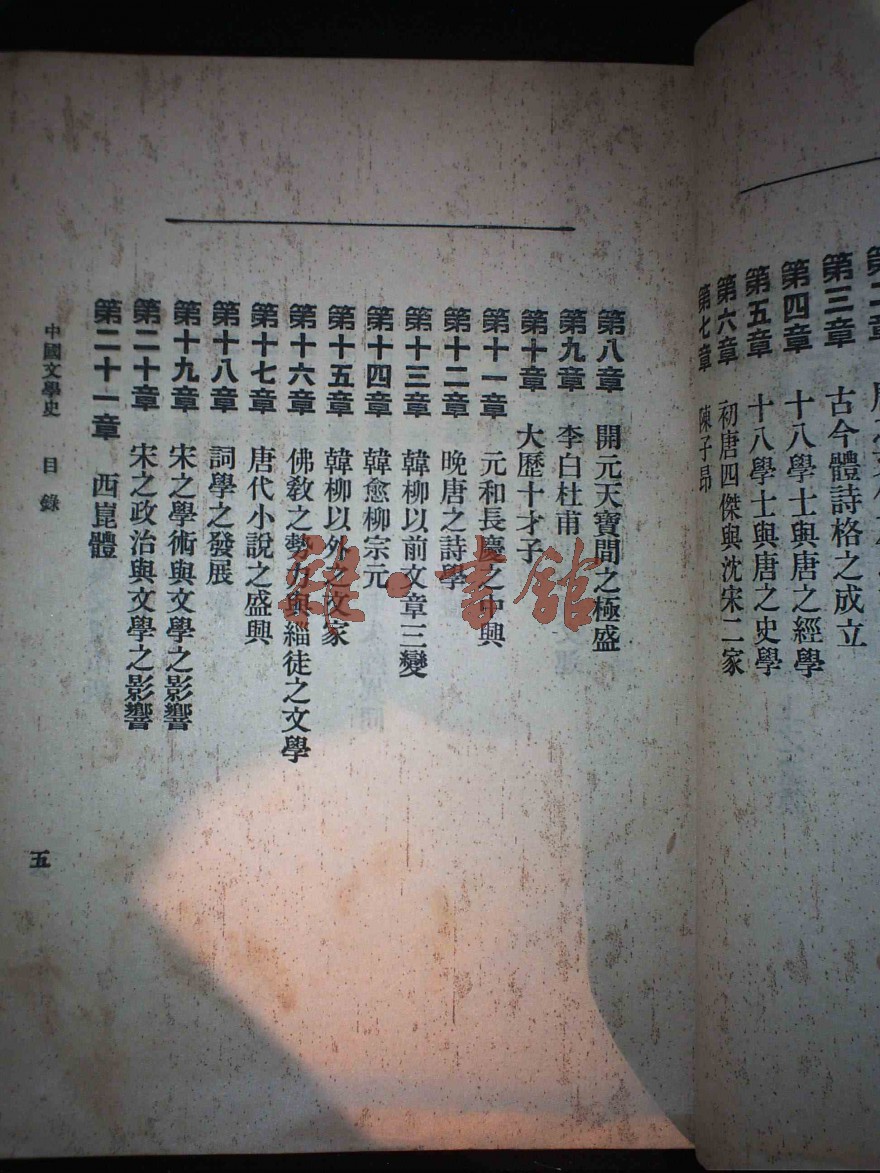 第三章 古今體詩格之成立
第四章 十八學士與唐之經學
第五章 十八學士與唐之史學
第六章 初唐四傑與沈宋二家
第七章 陳子昂
第八章 開元天寶間之極盛
第九章 李白杜甫
第十章 大歷十才子
第十一章 元和長慶之中興
第十二章 晚唐之詩學
第十三章 韓柳以前文章三變
第十四章 韓愈柳宗元
第十五章 韓柳以外之文家
第十六章 佛教之勢力與緇徒之文學
第十七章 唐代小說之盛興
第十八章 詞學之發展
第十九章 宋之學術與文學之影響
第二十章 宋之政治與文學之影響
第二十一章 西崑體
中國文學史 目錄
五
書館